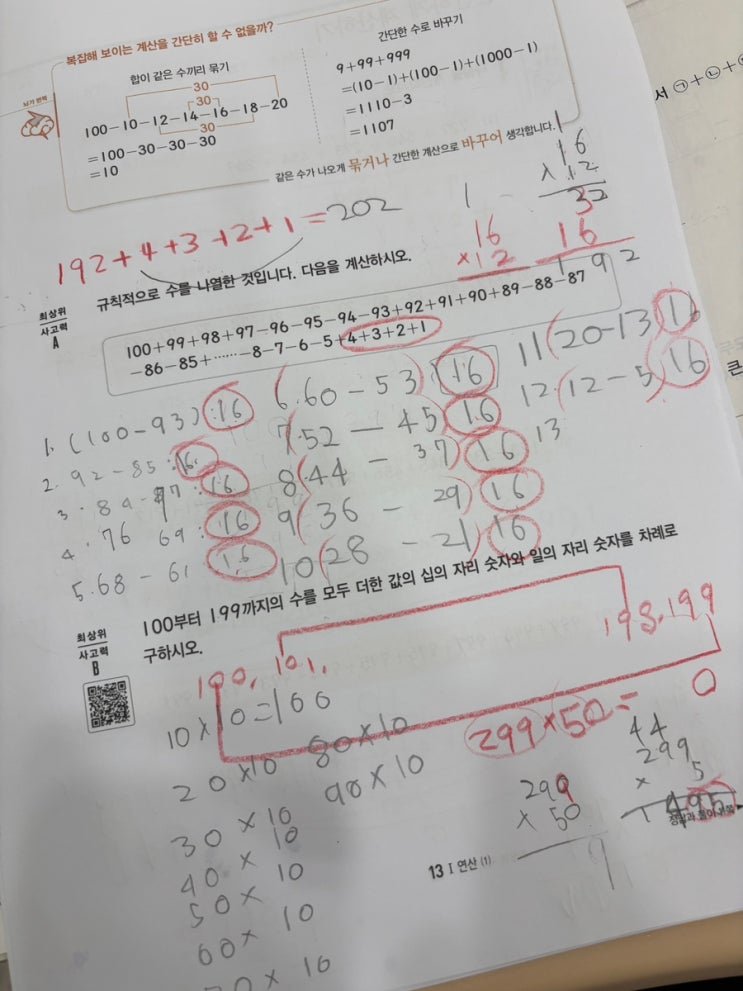 복잡해 보이는 계산을 간단히 할 수 없을까?
뇌가 번쩍
합이 같은 수끼리 묶기
30
30
100-10-12-14-16-18-20
30
=100-30-30-30
=10
간단한 수로 바꾸기
9+99+999
=(10-1)+(100-1)+(1000-1)
=1110-3
=1107
같은 수가 나오게 묶거나 간단한 계산으로 바꾸어 생각합니다.
서 ㉠+㉡+
192+4+3+2+1=202
1
16
×12
1
16
×12
32
16
192
최상위
사고력
A
규칙적으로 수를 나열한 것입니다. 다음을 계산하시오.
100+99+98+97-96-95-94-93+92+91+90+89-88-87
-86-85+……-8-7-6-5+4+3+2+1
큰
1. (100-93) 16
2. 92-85 16
3. 84-77 : 16
4. 76 69 : 16
5. 68-61 16
6. 60-53) 16
7(52-45) 16
8(44-37) 16
9(36-29) 16
10(28-21) 16
11(20-13) 16
12(12-5) 16
13
최상위
사고력
B
100부터 199까지의 수를 모두 더한 값의 십의 자리 숫자와 일의 자리 숫자를 차례로
구하시오.
100, 101, 198, 199
10×10=100
20×10
30×10
40×10
50×10
60×10
70×10
80×10
90×10
299×50=
0
299
×50
44
299
×5
1495
13 I 연산 (1)